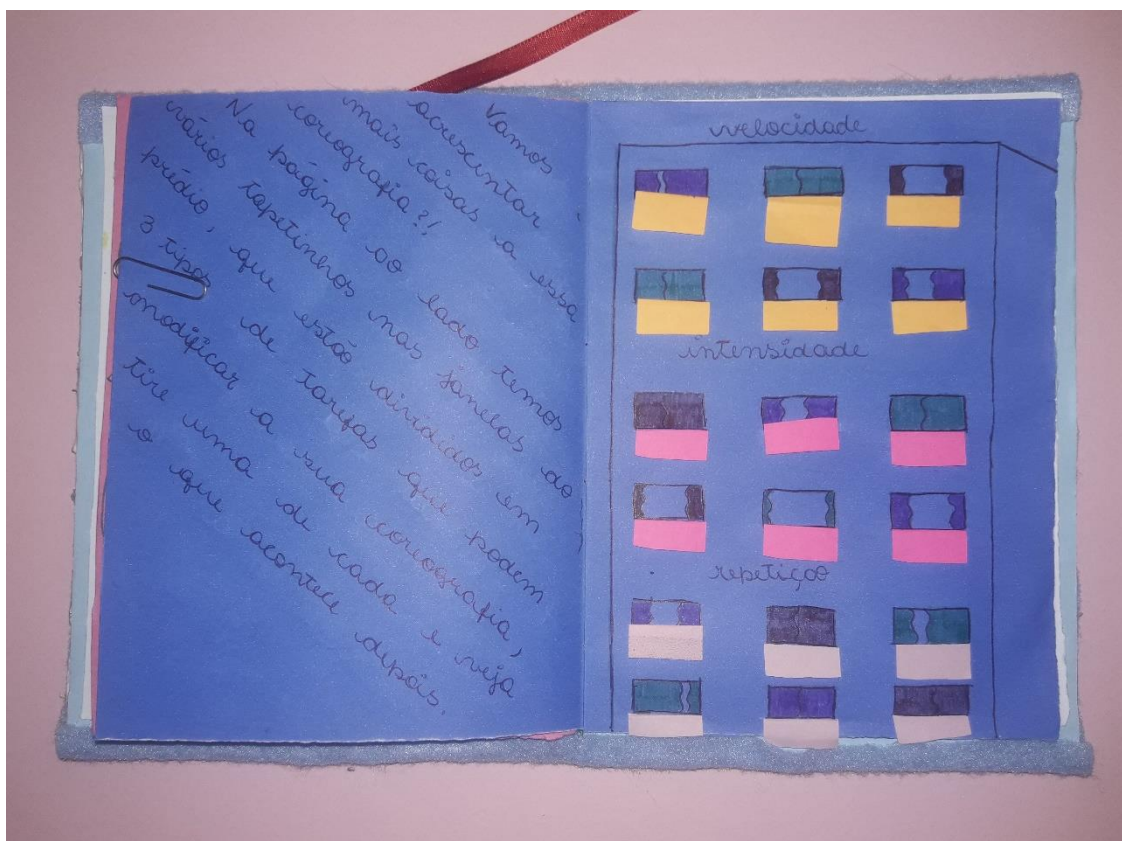 Vamos
acrescentar
mais coisas a essa
coreografia?!
Na página ao lado temos
vários tapetinhos nas janelas do
prédio, que estão divididos em
3 tipos de tarefas que podem
modificar a sua coreografia,
tire uma de cada e veja
o que acontece depois.
velocidade
intensidade
repetição